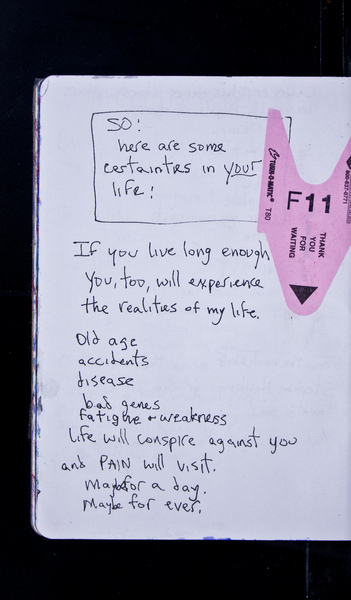 SO:
here are some
certainties in your
life:
If you live long enough
you, too, will experience
the realities of my life.
Old age
accidents
disease
bad genes
fatigue + weakness
Life will conspire against you
and PAIN will visit.
Maybe for a day.
Maybe for ever.
TURN-O-MATIC® T80
F11
THANK
YOU
FOR
WAITING
800-637-0771